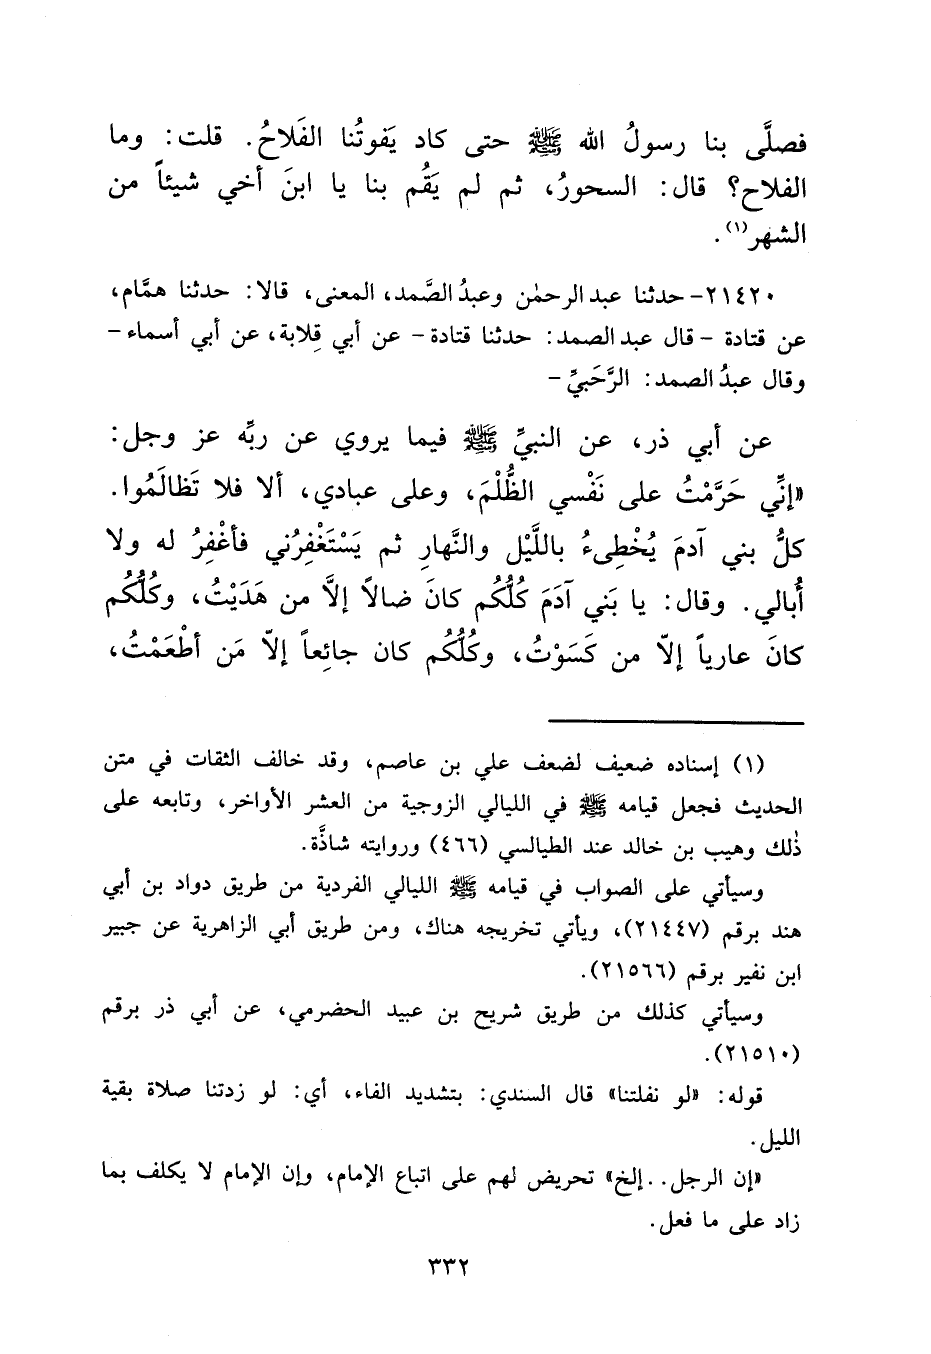 فصلَّى بنا رسولُ الله ﷺ حتى كاد يَفوتُنا الفَلاحُ. قلت: وما
الفلاح؟ قال: السحورُ، ثم لم يَقُم بنا يا ابنَ أخي شيئاً من
الشهر(١).
٢١٤٢٠- حدثنا عبد الرحمٰن وعبدُ الصَّمد، المعنى، قالا: حدثنا همَّام،
عن قتادة - قال عبد الصمد: حدثنا قتادة - عن أبي قِلابة، عن أبي أسماء -
وقال عبدُ الصمد: الرَّحَبيِّ -
عن أبي ذر، عن النبيِّ ﷺ فيما يروي عن ربِّه عز وجل:
«إنِّي حَرَّمْتُ على نَفْسي الظُّلْمَ، وعلى عبادي، ألا فلا تَظالَمُوا.
كلُّ بني آدمَ يُخْطِىءُ باللَّيْل والنَّهارِ ثم يَسْتَغْفِرُني فأغْفِرُ له ولا
أُبالي. وقال: يا بَني آدَمَ كُلُّكُم كانَ ضالاً إلاَّ من هَدَيْتُ، وكُلُّكُم
كانَ عارياً إلاّ من كَسَوْتُ، وكُلُّكُم كان جائِعاً إلاّ مَن أطْعَمْتُ،
(١) إسناده ضعيف لضعف علي بن عاصم، وقد خالف الثقات في متن
الحديث فجعل قيامه ﷺ في الليالي الزوجية من العشر الأواخر، وتابعه على
ذٰلك وهيب بن خالد عند الطيالسي (٤٦٦) وروايته شاذَّة.
وسيأتي على الصواب في قيامه ﷺ الليالي الفردية من طريق دواد بن أبي
هند برقم (٢١٤٤٧)، ويأتي تخريجه هناك، ومن طريق أبي الزاهرية عن جبير
ابن نفير برقم (٢١٥٦٦).
وسيأتي كذلك من طريق شريح بن عبيد الحضرمي، عن أبي ذر برقم
(٢١٥١٠).
قوله: «لو نفلتنا» قال السندي: بتشديد الفاء، أي: لو زدتنا صلاة بقية
الليل.
«إن الرجل..إلخ» تحريض لهم على اتباع الإمام، وإن الإمام لا يكلف بما
زاد على ما فعل.
٣٣٢